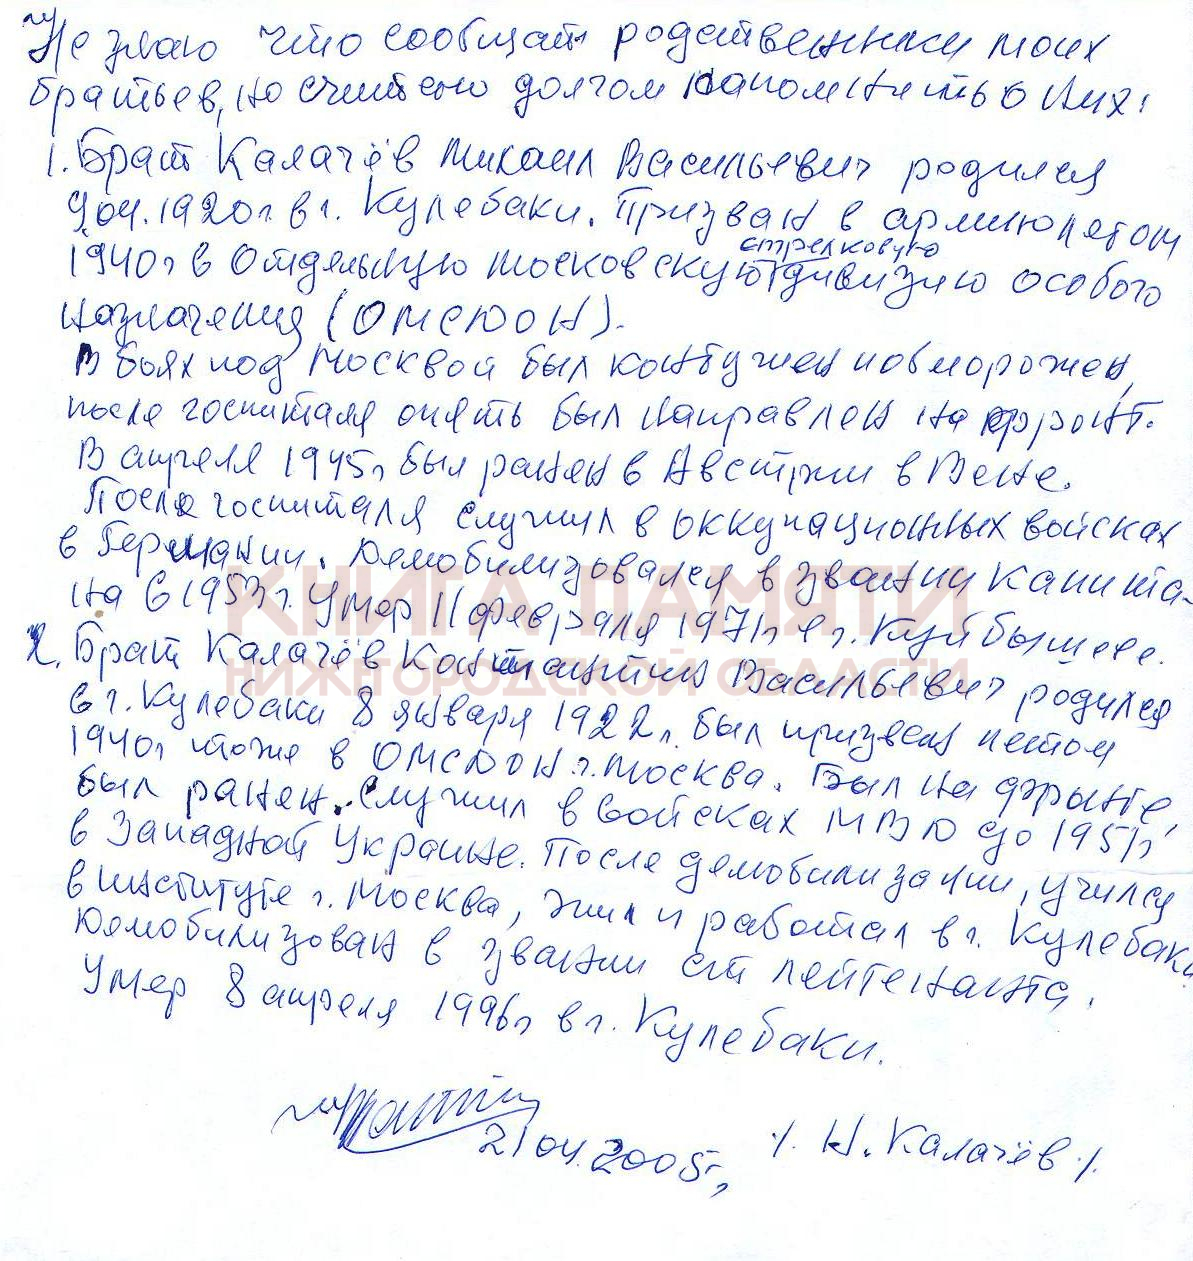 Не знаю что сообщат родственники моих
братьев, но считаю долгом напомнить о них:
1. Брат Калачёв Михаил Васильевич родился
9.04.1920г. в г. Кулебаки. Призван в армию летом
стрелковую
1940г в Отдельную московскую дивизию особого
назначения (ОМСДОН).
В боях под Москвой был контужен и обморожен,
после госпиталя опять был направлен на фронт.
В апреле 1945г был ранен в Австрии в Вене.
После госпиталя служил в оккупационных войсках
в Германии. Демобилизовался в звании капита-
на в 1953г. Умер 11 февраля 1971г в г. Куйбышеве.
2. Брат Калачёв Константин Васильевич родился
в г. Кулебаки 8 января 1922г. был призван летом
1940г тоже в ОМСДОН г. Москва. Был на фронте,
был ранен. Служил в войсках МВД до 1951г
в Западной Украине. После демобилизации, учился
в институте г. Москва, жил и работал в г. Кулебаки
Демобилизован в звании ст лейтенанта.
Умер 8 апреля 1996г в г. Кулебаки.
21 04. 2005г, /. Н. Калачёв /.
КНИГА ПАМЯТИ
НИЖГОРОДСКОЙ ОБЛАСТИ